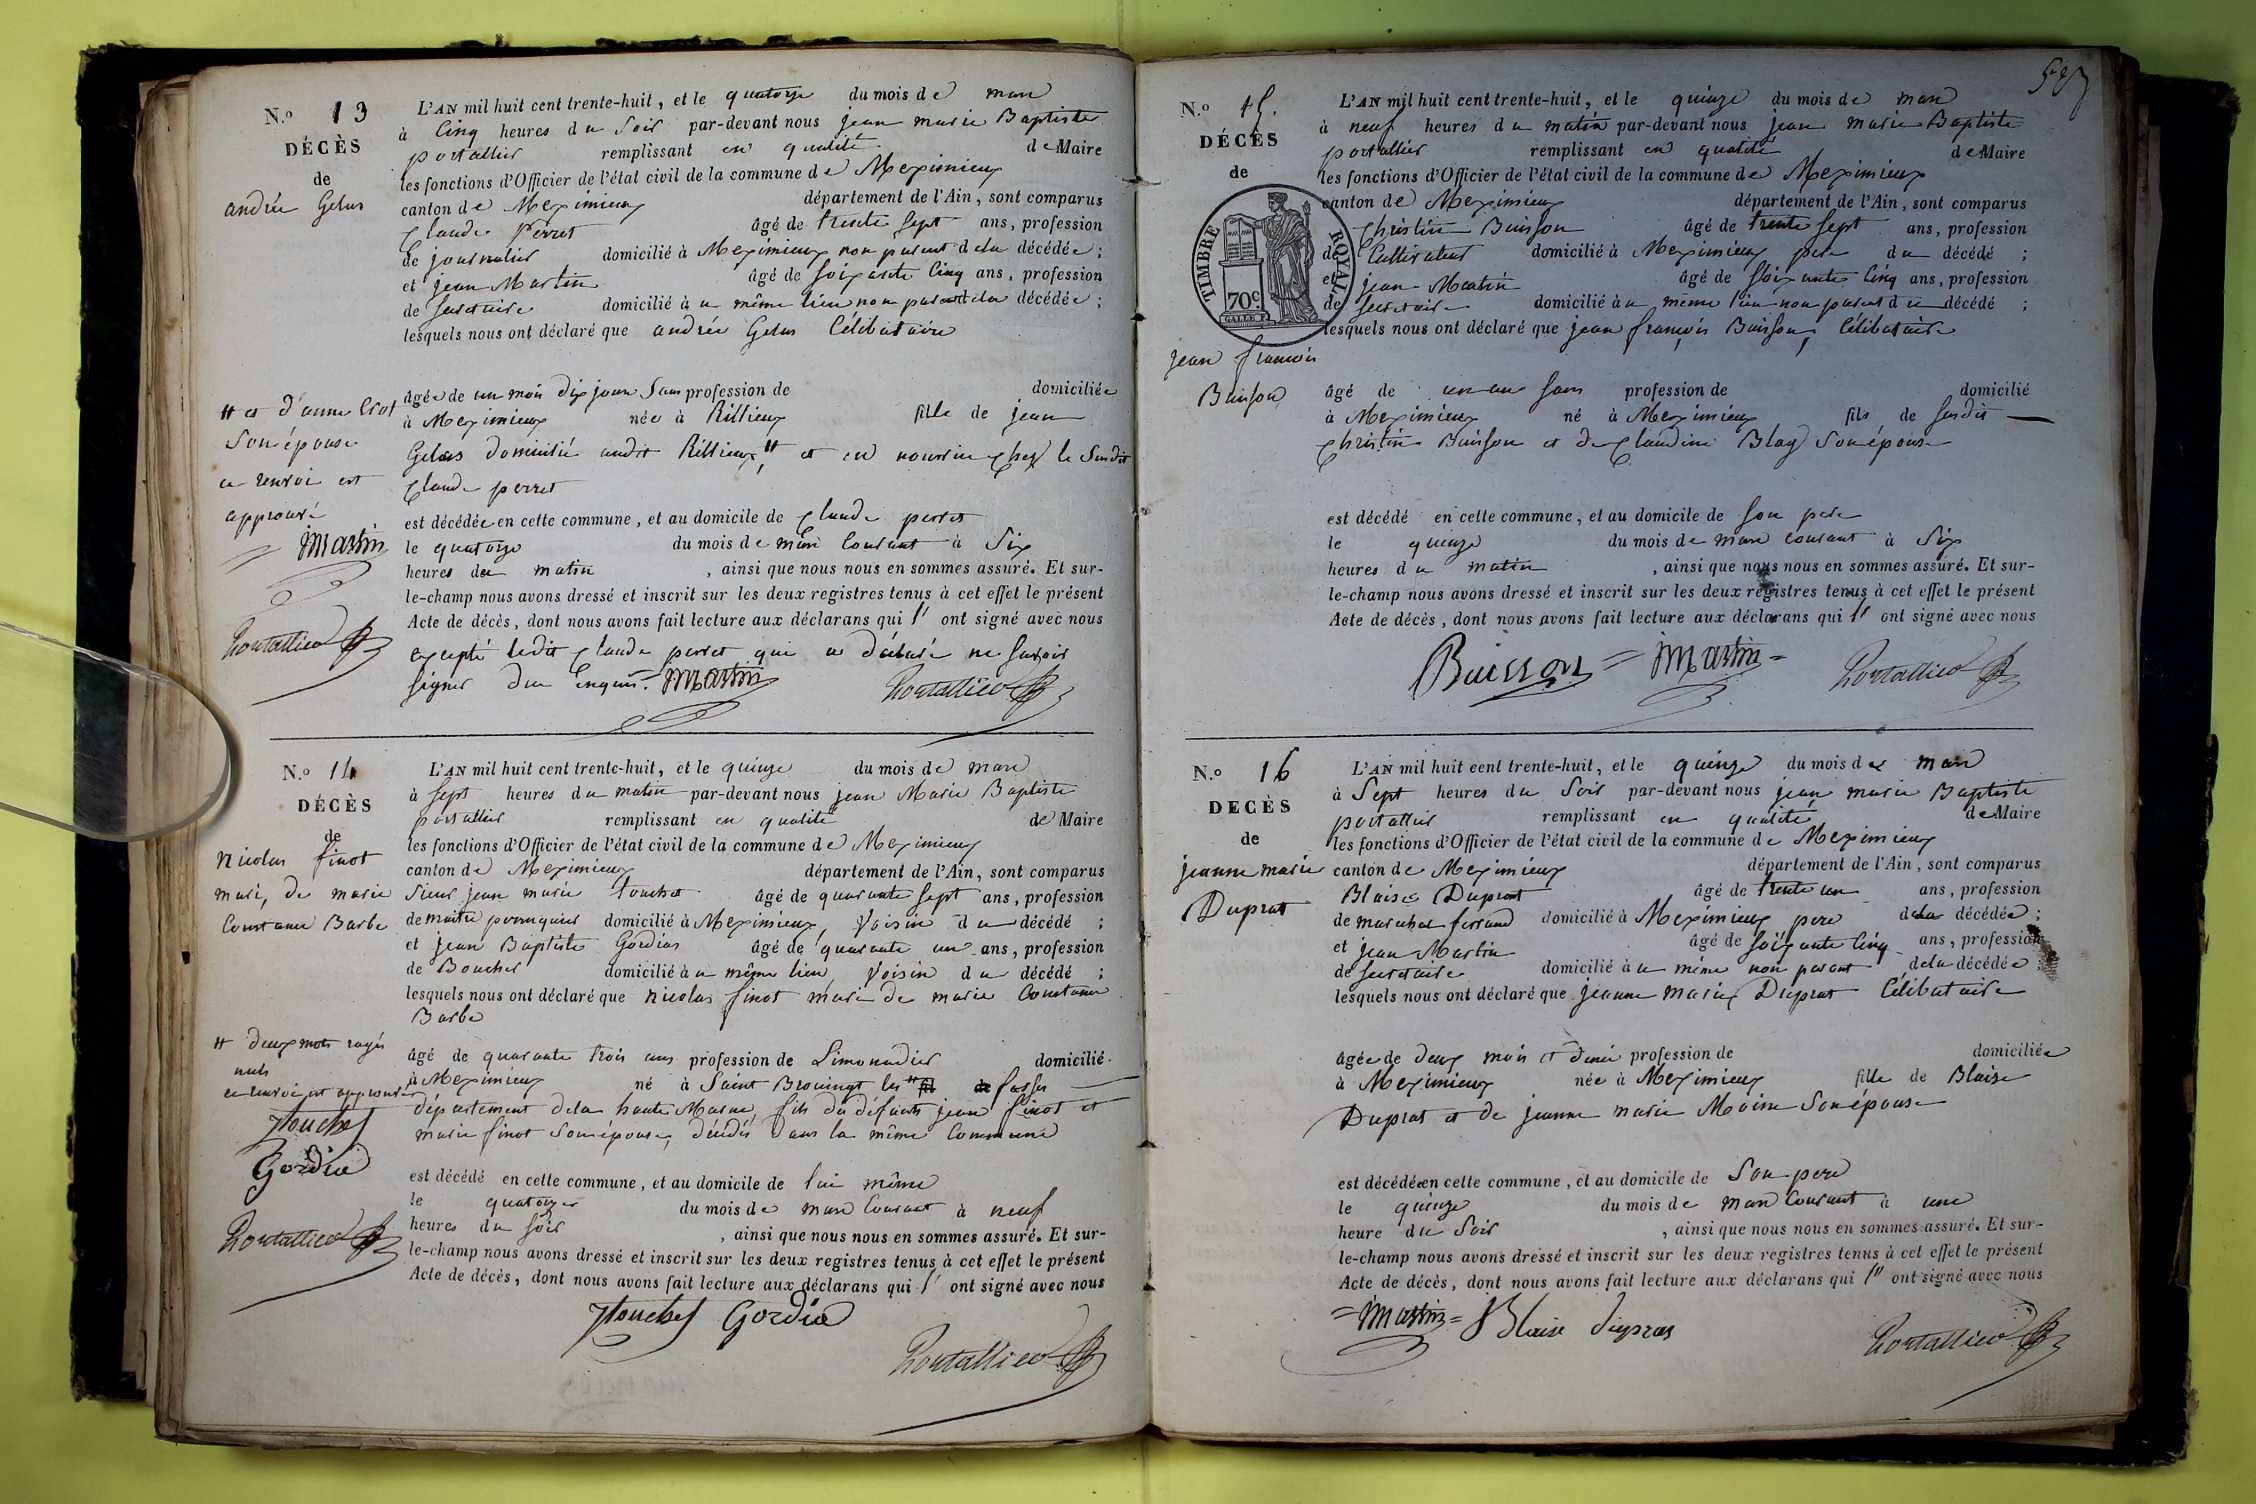 N.o 13
DÉCÈS
de
andrée Gelas
L'AN mil huit cent trente-huit, et le quatorze du mois de mars
à Cinq heures du Soir par-devant nous jean marie Baptiste
portallier remplissant en qualité de Maire
les fonctions d'Officier de l'état civil de la commune de Meximieux
canton de Meximieux département de l'Ain, sont comparus
Claude Perret âgé de trente Sept ans, profession
de journalier domicilié à Meximieux non parent dela décédée;
et jean Martin âgé de soixante Cinq ans, profession
de secretaire domicilié à u même lieu non parent dela décédée;
lesquels nous ont déclaré que andrée Gelas Célibataire
âgée de un mois dix jours Sans profession de domiciliée
à Meximieux née à Rillieux fille de jean
Gelas domicilié audit Rillieux, # et en nourrice chez le Susdit
Claude perret
# et d'anne Crot
Son épouse
ce renvoi est
approuvé
jmartin
Portallier
est décédée en cette commune, et au domicile de Claude perret
le quatorze du mois de mars Courant à Six
heures du matin, ainsi que nous nous en sommes assuré. Et sur-
le-champ nous avons dressé et inscrit sur les deux registres tenus à cet effet le présent
Acte de décès, dont nous avons fait lecture aux déclarans qui l' ont signé avec nous
excepté ledit Claude perret qui a déclaré ne Savoir
signer Due Enquis. jmartin Portallier
N.o 14
DÉCÈS
de
nicolas finot
mari, de marie
Constance Barbe
L'AN mil huit cent trente-huit, et le quinze du mois de mars
à sept heures du matin par-devant nous jean Marie Baptiste
portallier remplissant en qualité de Maire
les fonctions d'Officier de l'état civil de la commune de Meximieux
canton de Meximieux département de l'Ain, sont comparus
Sieur jean marie touchet âgé de quarante sept ans, profession
de maitre perruquier domicilié à Meximieux, Voisin du décédé;
et jean Baptiste Gordias âgé de quarante un ans, profession
de Boucher domicilié à u même lieu, Voisin du décédé;
lesquels nous ont déclaré que nicolas finot mari de marie Constance
Barbe
âgé de quarante trois ans profession de Limonadier domicilié
à Meximieux né à Saint Broingt les # fosses
département dela haute Marne, fils du défunts jean finot et
marie finot Son épouse, décédés Dans la même Commune
# deux mots rayés
nuls
ce renvoi est approuvé
jtouchet
Gordia
Portallier
est décédé en cette commune, et au domicile de lui même
le quatorze du mois de mars Courant à neuf
heures du soir, ainsi que nous nous en sommes assuré. Et sur-
le-champ nous avons dressé et inscrit sur les deux registres tenus à cet effet le présent
Acte de décès, dont nous avons fait lecture aux déclarans qui l' ont signé avec nous
jtouchet Gordia
Portallier
N.o 15.
DÉCÈS
de
TIMBRE ROYAL
70c
GALLE F.
jean francois
Buisson
L'AN mil huit cent trente-huit, et le quinze du mois de mars
à neuf heures du matin par-devant nous jean marie Baptiste
portallier remplissant en qualité de Maire
les fonctions d'Officier de l'état civil de la commune de Meximieux
canton de Meximieux département de l'Ain, sont comparus
Christin Buisson âgé de trente sept ans, profession
de Cultivateur domicilié à Meximieux pere du décédé;
et jean Martin âgé de Soixante Cinq ans, profession
de secretaire domicilié à u même lieu non parent du décédé;
lesquels nous ont déclaré que jean françois Buisson, Célibataire
âgé de un an sans profession de domicilié
à Meximieux né à Meximieux fils de Susdit
Christin Buisson et de Claudine Blag Son épouse
est décédé en cette commune, et au domicile de son pere
le quinze du mois de mars courant à Six
heures du matin, ainsi que nous nous en sommes assuré. Et sur-
le-champ nous avons dressé et inscrit sur les deux registres tenus à cet effet le présent
Acte de décès, dont nous avons fait lecture aux déclarans qui l' ont signé avec nous
Buisson = jmartin = Portallier
N.o 16
DECÈS
de
jeanne marie
Duprat
L'AN mil huit cent trente-huit, et le quinze du mois de mars
à Sept heures du Soir par-devant nous jean marie Baptiste
portallier remplissant en qualité de Maire
les fonctions d'Officier de l'état civil de la commune de Meximieux
canton de Meximieux département de l'Ain, sont comparus
Blaise Duprat âgé de trente un ans, profession
de marechal ferrand domicilié à Meximieux pere dela décédée;
et jean Martin âgé de soixante Cinq ans, profession
de secretaire domicilié à u même non parent dela décédée
lesquels nous ont déclaré que jeanne marie Duprat Célibataire
âgée de deux mois et demi profession de domiciliée
à Meximieux née à Meximieux fille de Blaise
Duprat et de jeanne marie Moine Son épouse
est décédée en cette commune, et au domicile de Son pere
le quinze du mois de mars Courant à une
heure du Soir, ainsi que nous nous en sommes assuré. Et sur-
le-champ nous avons dressé et inscrit sur les deux registres tenus à cet effet le présent
Acte de décès, dont nous avons fait lecture aux déclarans qui l' ont signé avec nous
= jmartin = Blaise duprat
Portallier